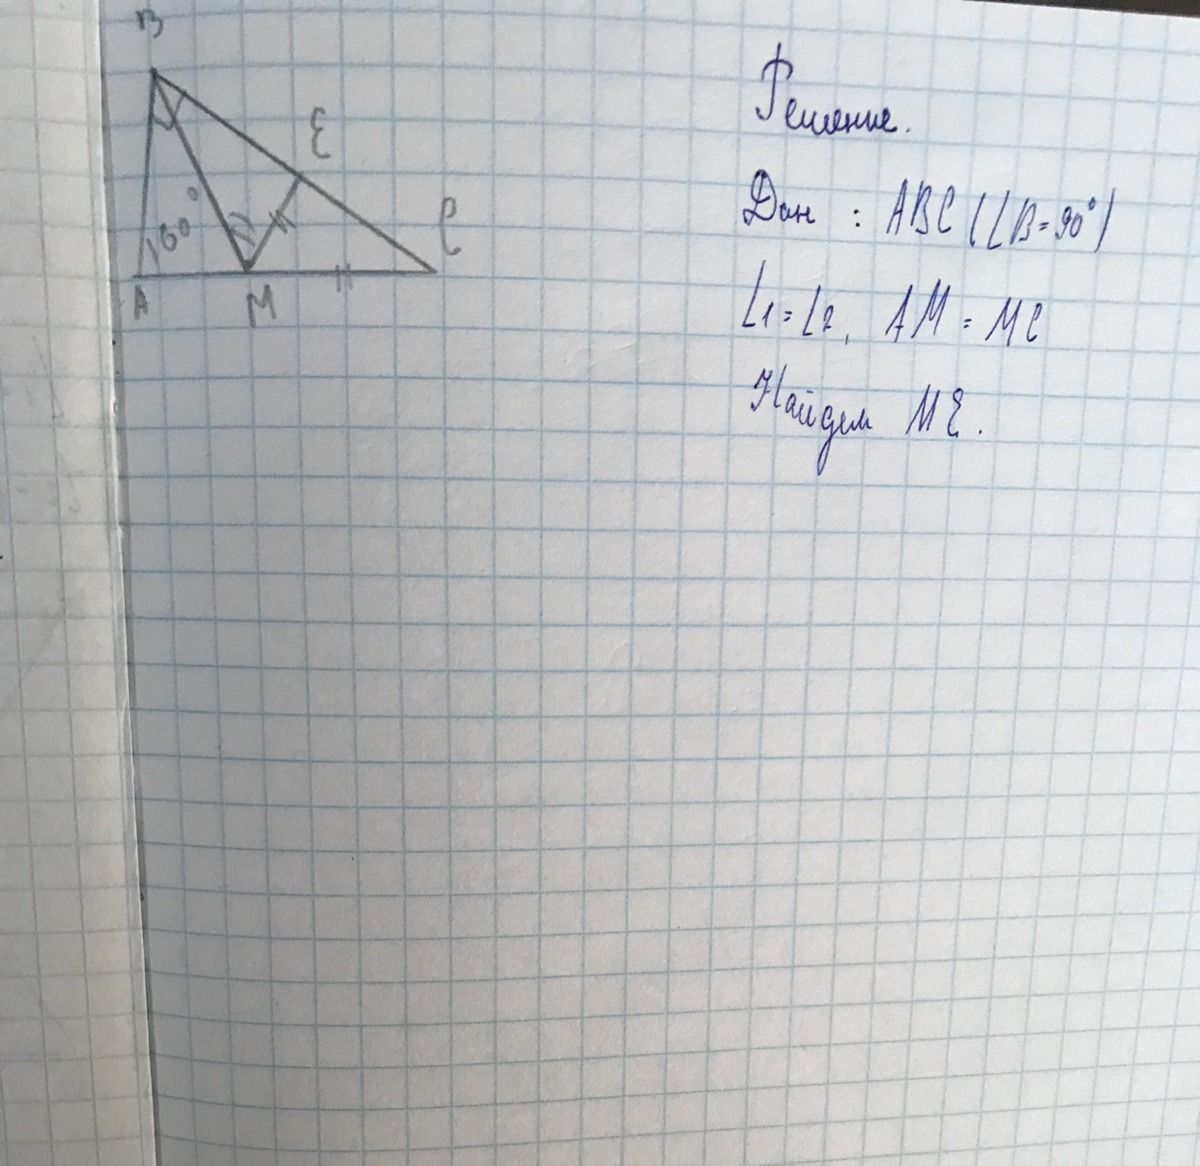 B
E
C
60°
A
M
Решение.
Дан : ABC (∠B=90°)
∠1=∠2, AM = MC
Найдем ME.